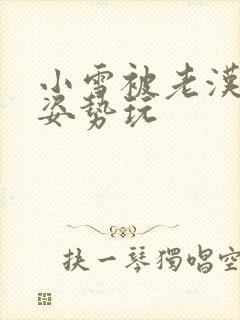 小雪被老漢
姿勢玩
抉一琴獨唱空